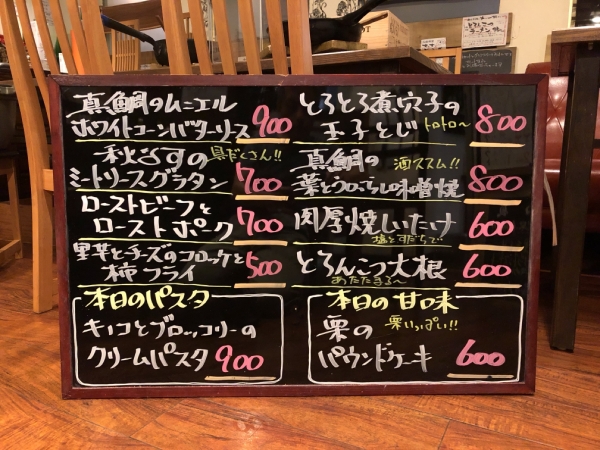 真鯛のムニエル
ホワイトコーンバターソース 900
秋なすの 具だくさん!!
ミートソースグラタン 700
ローストビーフと
ローストポーク 700
里芋とチーズのコロッケと
柿フライ 500
本日のパスタ
キノコとブロッコリーの
クリームパスタ 900
とろとろ煮穴子の
玉子とじ トロトロ〜 800
真鯛の 酒ススム!!
味噌焼 800
肉厚焼しいたけ 600
塩とすだちで!!
とろんこつ大根 600
あたたまる〜
本日の甘味
栗の 栗いっぱい!!
パウンドケーキ 600